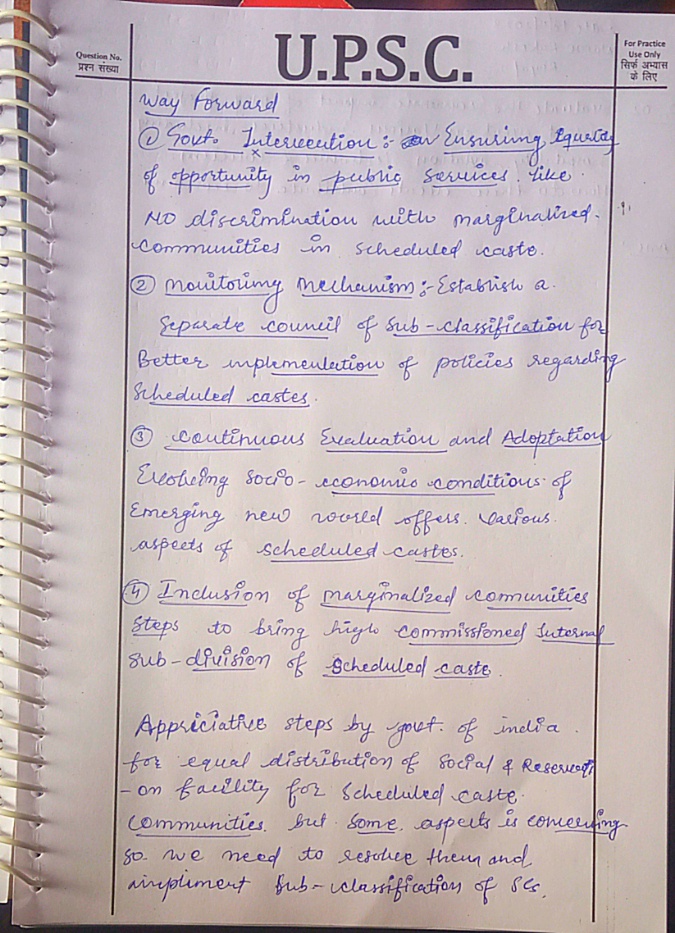 Question No.
प्रश्न संख्या
U.P.S.C.
For Practice
Use Only
सिर्फ अभ्यास
के लिए
Way Forward
① Govt. Intervention :- Ensuring Equality
of opportunity in public services. like
NO discrimination with marginalized.
communities in scheduled caste.
② Monitoring Mechanism :- Establish a
Separate council of Sub-classification for
Better implementation of policies regarding
Scheduled castes.
③ Continuous Evaluation and Adoptation
Evolving Socio-economic conditions of
Emerging new world offers. various
aspects of scheduled castes.
④ Inclusion of marginalized communities
Steps to bring high commissioned Internal
Sub-division of Scheduled caste.
Appriciative steps by govt. of india
for equal distribution of Social & Reservati
-on facility for Scheduled caste
communities. but some aspects is concerning
so we need to resolve them and
impliment Sub-classification of SCs.